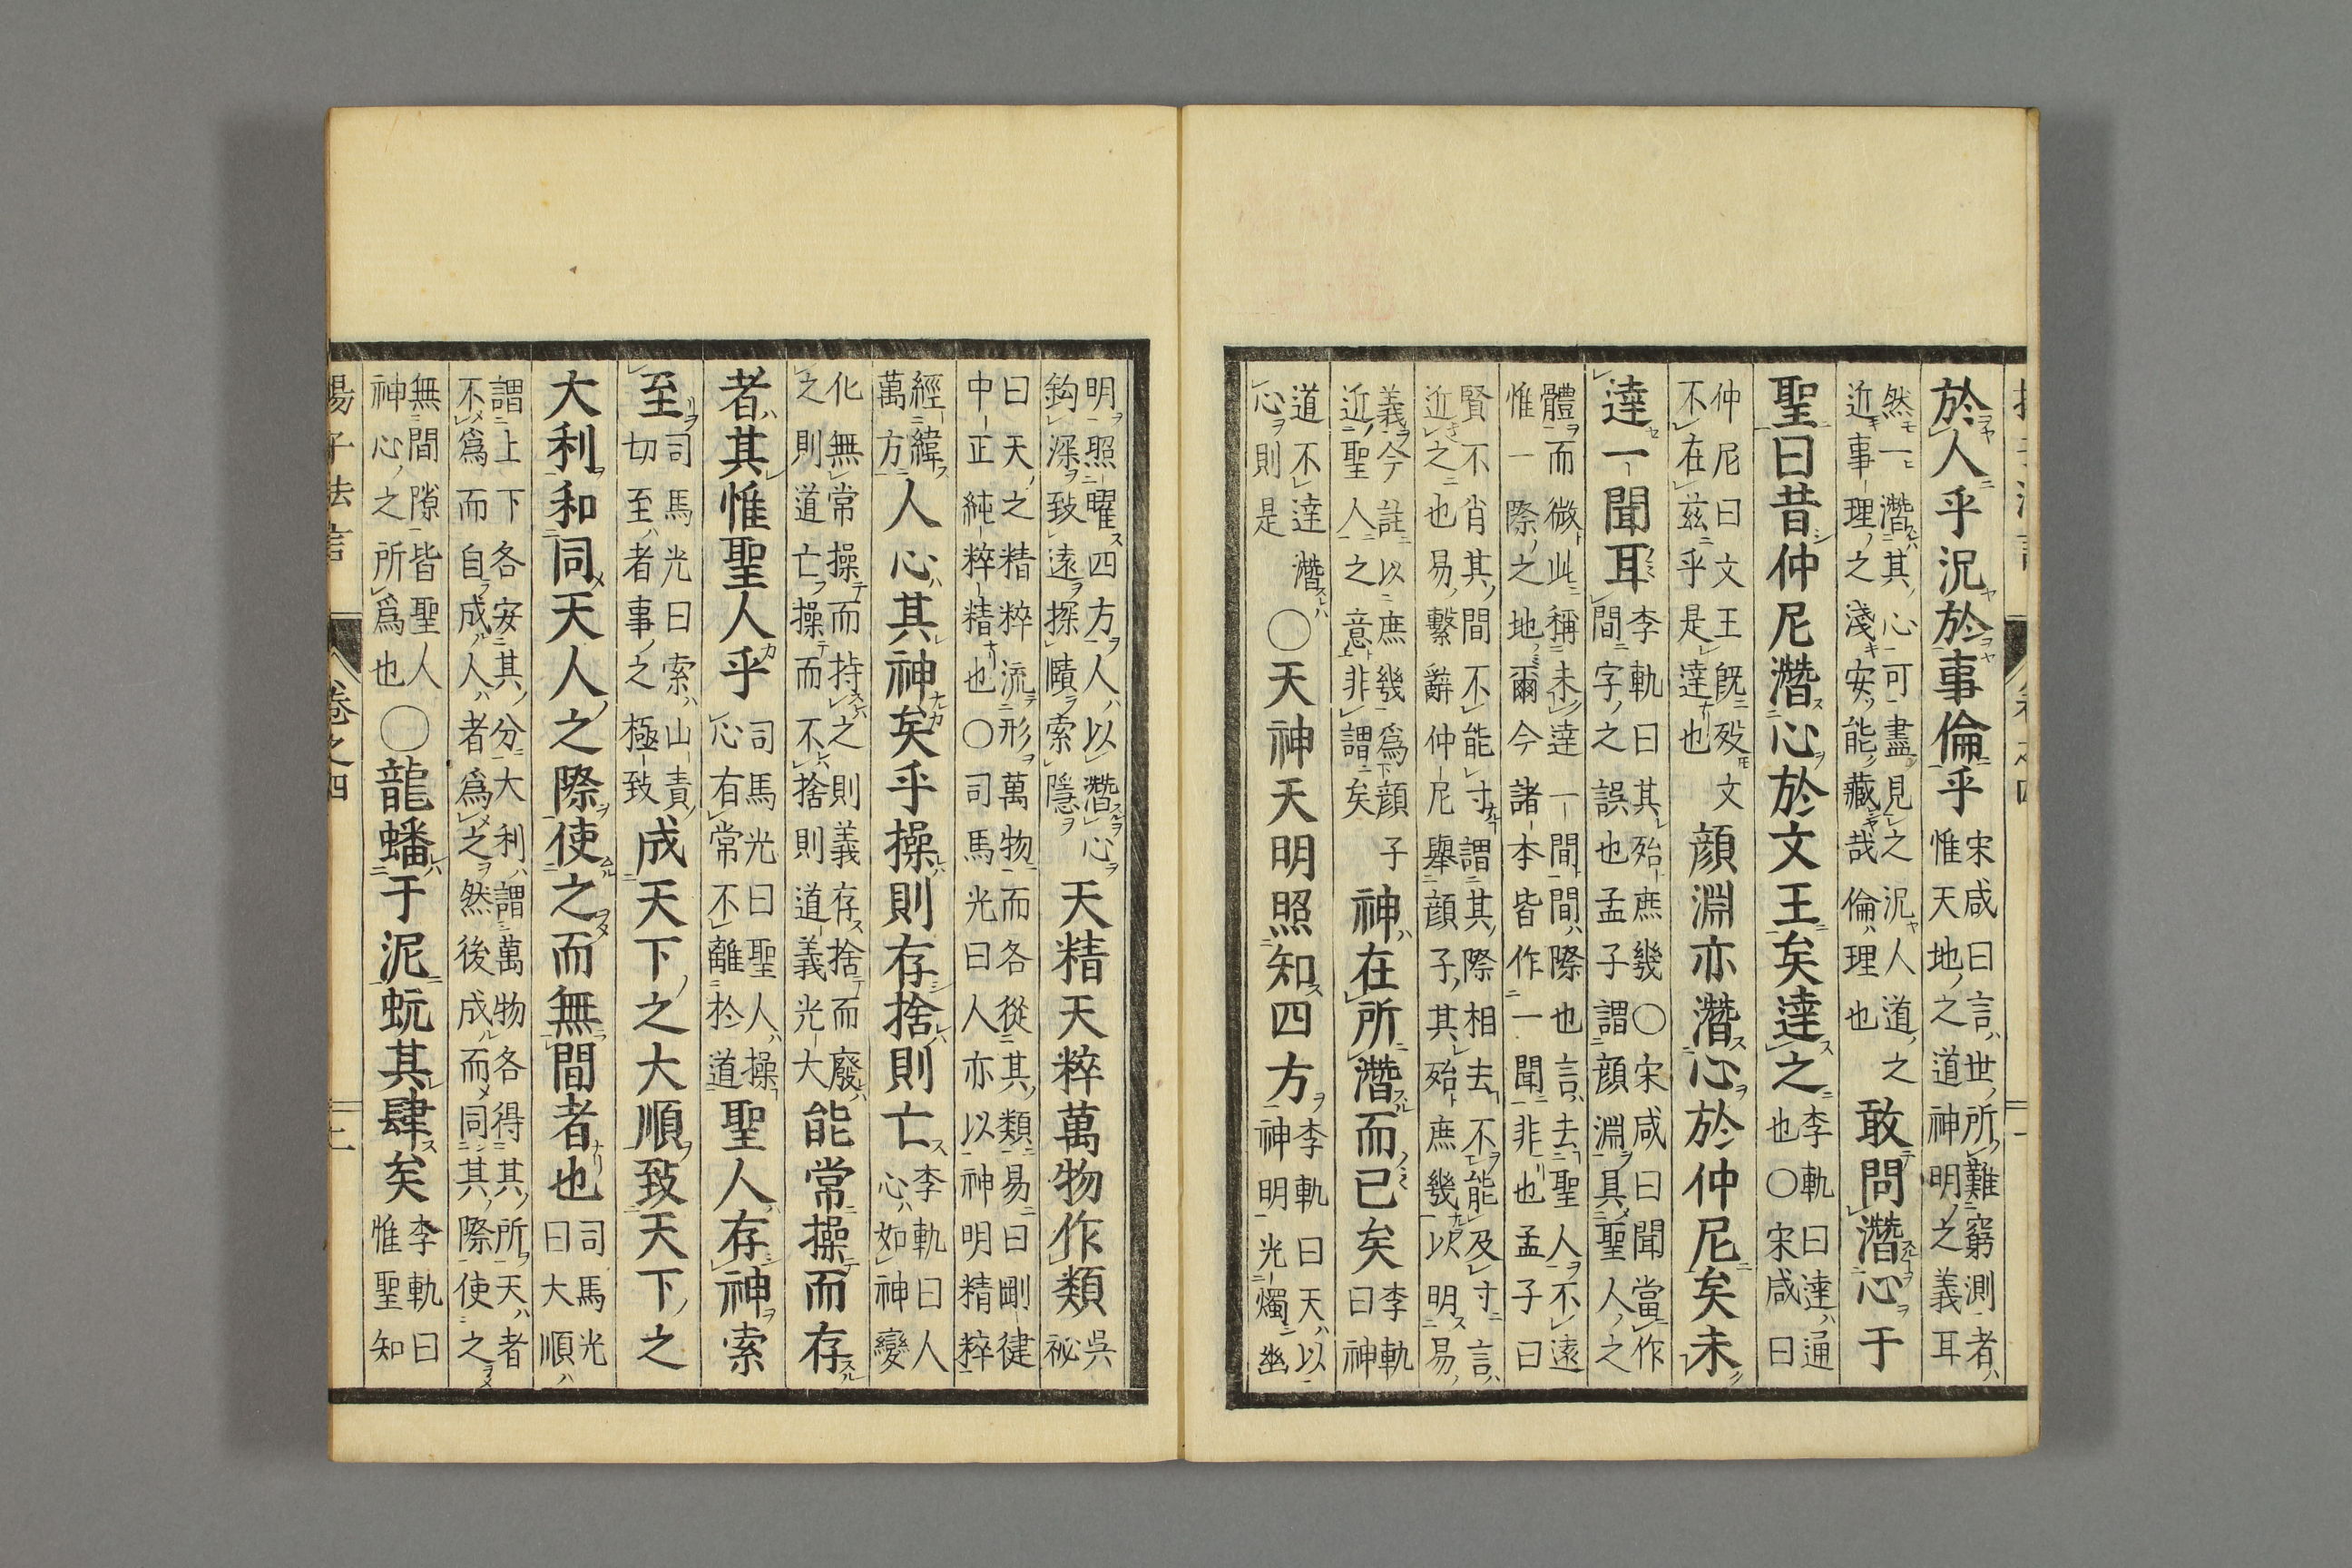 於人乎況於事倫乎
宋咸曰言世所難窮測者
惟天地之道神明之義耳
然一潛其心可盡見之況人道之
近事理之淺安能藏哉倫理也
敢問潛心于
聖曰昔仲尼潛心於文王矣達之
李軌曰達通
也〇宋咸曰
仲尼曰文王旣歿文
不在茲乎是達也
顏淵亦潛心於仲尼矣未
達一聞耳
李軌曰其殆庶幾〇宋咸曰聞當作
間字之誤也孟子謂顏淵具聖人之
體而微此稱未達一間間際也言去聖人不遠
惟一際之地爾今諸本皆作一聞非也孟子曰
賢不肖其間不能寸謂其際相去不能及寸言
近之也易繫辭仲尼舉顏子其殆庶幾以明易
義今註以庶幾爲顏子
近聖人之意非謂矣
神在所潛而已矣
李軌
曰神
道不達潛
心則是
〇天神天明照知四方
李軌曰天以
神明光燭幽
明照曜四方人以潛心
鈎深致遠探賾索隱
天精天粹萬物作類
吳
祕
曰天之精粹流形萬物而各從其類易曰剛健
中正純粹精也〇司馬光曰人亦以神明精粹
經緯
萬方
人心其神矣乎操則存捨則亡
李軌曰人
心如神變
化無常操而持之則義存捨而廢
之則道亡操而不捨則道義光大
能常操而存
者其惟聖人乎
司馬光曰聖人操
心有常不離於道
聖人存神索
至
司馬光曰索山責
切至者事之極致
成天下之大順致天下之
大利和同天人之際使之而無間者也
司馬光
曰大順
謂上下各安其分大利謂萬物各得其所天者
不爲而自成人者爲之然後成而同其際使之
無間隙皆聖人
神心之所爲也
〇龍蟠于泥蚖其肆矣
李軌曰
惟聖知
揚子法言 卷之四 二